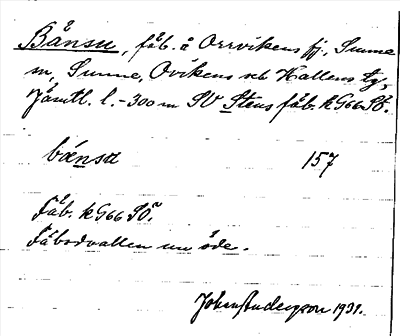 Bånsu, fäb. å Orrvikens fj. Sunne
m, Sunne, Ovikens och Hallens tg,
Jämtl. l. - 300 m SV Stens fäb. k G66 SÖ.
bánsa 157
Fäb. k G66 SÖ.
Fäbodvallen nu öde.
John Anderson 1931.